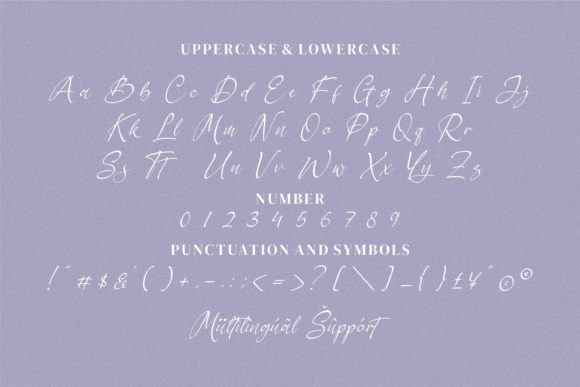 UPPERCASE & LOWERCASE
Aa Bb Cc Dd Ee Ff Gg Hh Ii Jj
Kk Ll Mm Nn Oo Pp Qq Rr
Ss Tt Uu Vv Ww Xx Yy Zz
NUMBER
0 1 2 3 4 5 6 7 8 9
PUNCTUATION AND SYMBOLS
! " # $ & ' ( ) + , - . : ; < = > ? [ \ ] _ { } £ ¥ " © ®
Mültilingúãl Šûppórt